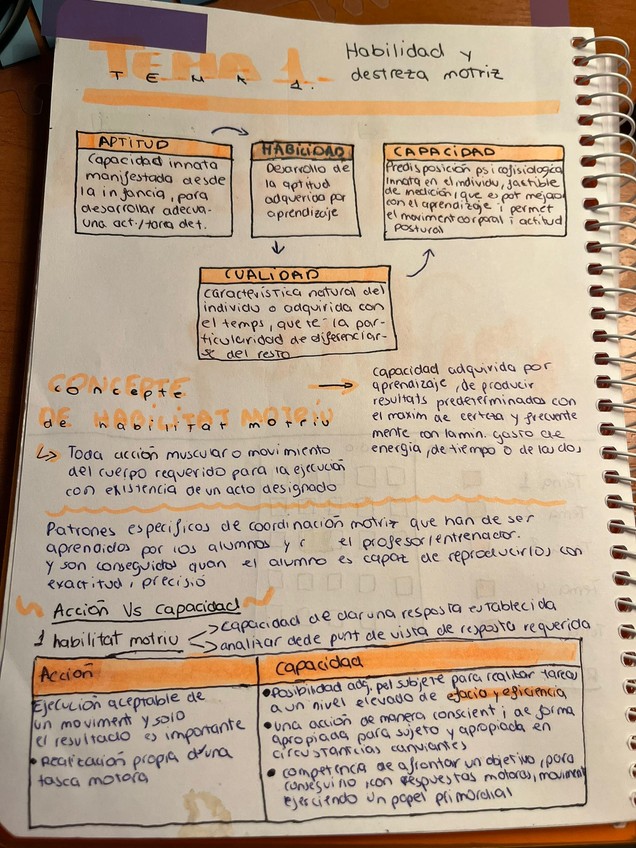 TEMA 1.
TEMA 1.
Habilidad y
destreza motriz
APTITUD
Capacidad innata
manifestada desde
la infancia, para
desarrollar adecua-
una act./tarea det.
HABILIDAD
Desarrollo de
la aptitud
adquerida por
aprendizaje
CAPACIDAD
Predisposición psicofisiologica
innata en el individu, factible
de medición, que es pot mejora
con el aprendizaje i permet
el moviment corporal i actitud
postural
CUALIDAD
característica natural del
individu o adquirida con
el temps, que té la par-
ticularidad de diferenciar-
se del resto
CONCEPTE
concepte
DE HABILITAT MOTRIU
de habilitat motriu
capacidad adquirida por
aprendizaje, de producir
resultats predeterminados con
el maxim de certeza y frecuente
mente con la min. gasto de
energia, de tiempo o de las dos
Toda acción muscular o movimiento
del cuerpo requerido para la ejecución
con existencia de un acto designado
Patrones especificos de coordinación motriz que han de ser
aprendidos por los alumnos y el profesor/entrenador.
y son conseguidos quan el alumno es capaz de reproducirlos con
exactitud, precisió
Acción Vs capacidad
1 habilitat motriu
capacidad de dar una resposta establecida
analitzar dede punt de vista de resposta requerida
Acción
Ejecución aceptable de
un moviment y solo
el resultado es importante
• Realización propia d'una
tasca motora
Capacidad
• Posibilidad adq. pel subjete para realitzar tareas
a un nivel elevado de eficacia y eficiencia
• una acción de manera conscient i de forma
apropiada para sujeto y apropiada en
circustancias canviantes
• competencia de afrontar un objetivo, para
conseguirlo, con respuestas motoras, moviment
ejerciendo un papel primordial